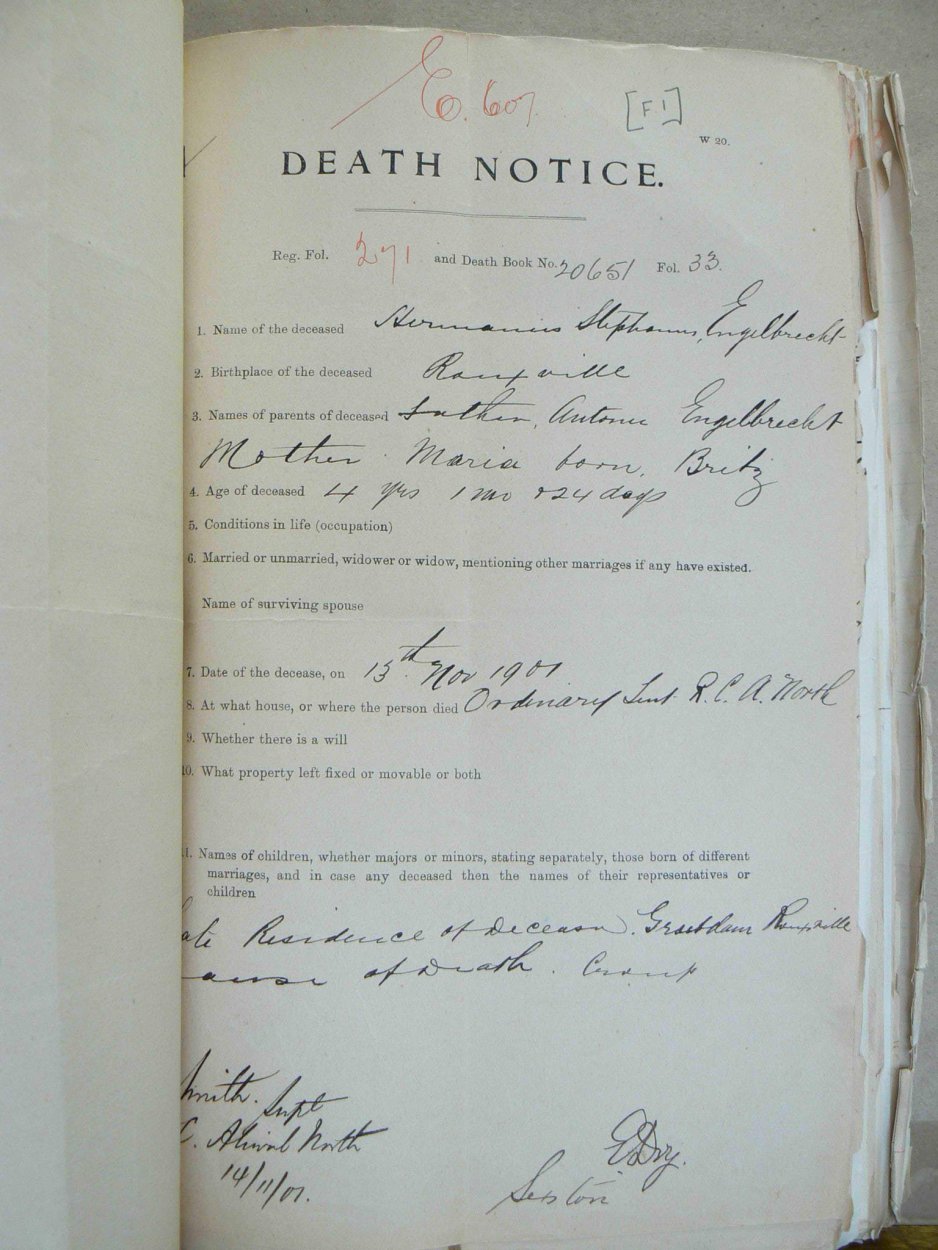 E. 607
[F 1]
W 20.
DEATH NOTICE.
Reg. Fol. 271 and Death Book No. 20651 Fol. 33.
1. Name of the deceased Hermanus Stephanus, Engelbrecht
2. Birthplace of the deceased Rouxville
3. Names of parents of deceased Father, Antonie Engelbrecht
Mother Maria born, Britz
4. Age of deceased 4 yrs 1 mo & 24 days
5. Conditions in life (occupation)
6. Married or unmarried, widower or widow, mentioning other marriages if any have existed.
Name of surviving spouse
7. Date of the decease, on 13th Nov 1901
8. At what house, or where the person died Ordinary Tent R. C. A. North
9. Whether there is a will
10. What property left fixed or movable or both
11. Names of children, whether majors or minors, stating separately, those born of different
marriages, and in case any deceased then the names of their representatives or
children
ate Residence of Deceased. Grootdam Rouxville
ause of Death. Croup
Smith. Supt
C. Aliwal North
14/11/01.
Sexton